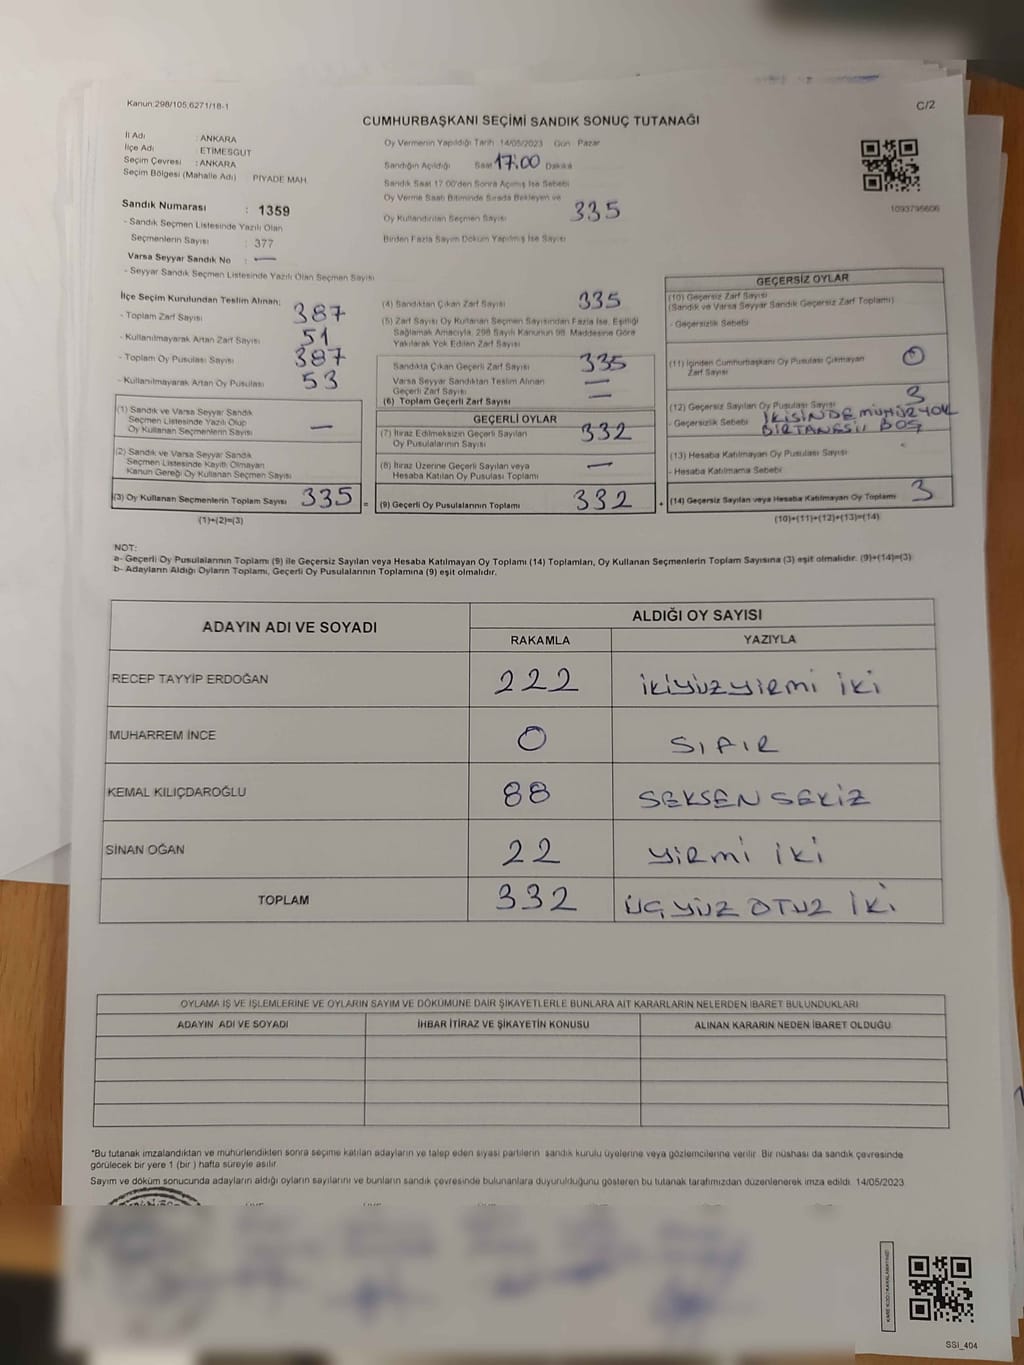 Kanun:298/105,6271/18-1
C/2
CUMHURBAŞKANI SEÇİMİ SANDIK SONUÇ TUTANAĞI
İl Adı : ANKARA
İlçe Adı : ETİMESGUT
Seçim Çevresi : ANKARA
Seçim Bölgesi (Mahalle Adı) PİYADE MAH.
Sandık Numarası : 1359
- Sandık Seçmen Listesinde Yazılı Olan
Seçmenlerin Sayısı : 377
Varsa Seyyar Sandık No : —
- Seyyar Sandık Seçmen Listesinde Yazılı Olan Seçmen Sayısı
Oy Vermenin Yapıldığı Tarih 14/05/2023 Gün Pazar
Sandığın Açıldığı Saat 17:00 Dakika
Sandık Saat 17.00'den Sonra Açılmış İse Sebebi
Oy Verme Saati Bitiminde Sırada Bekleyen ve
Oy Kullandırılan Seçmen Sayısı 335
Birden Fazla Sayım Döküm Yapılmış İse Sayısı
1093796606
İlçe Seçim Kurulundan Teslim Alınan;
- Toplam Zarf Sayısı 387
- Kullanılmayarak Artan Zarf Sayısı 51
- Toplam Oy Pusulası Sayısı 387
- Kullanılmayarak Artan Oy Pusulası 53
(1) Sandık ve Varsa Seyyar Sandık
Seçmen Listesinde Yazılı Olup
Oy Kullanan Seçmenlerin Sayısı —
(2) Sandık ve Varsa Seyyar Sandık
Seçmen Listesinde Kayıtlı Olmayan
Kanun Gereği Oy Kullanan Seçmen Sayısı
(3) Oy Kullanan Seçmenlerin Toplam Sayısı 335 =
(1)+(2)=(3)
(4) Sandıktan Çıkan Zarf Sayısı 335
(5) Zarf Sayısı Oy Kullanan Seçmen Sayısından Fazla İse, Eşitliği
Sağlamak Amacıyla, 298 Sayılı Kanunun 98. Maddesine Göre
Yakılarak Yok Edilen Zarf Sayısı
Sandıkta Çıkan Geçerli Zarf Sayısı 335
Varsa Seyyar Sandıktan Teslim Alınan
Geçerli Zarf Sayısı —
(6) Toplam Geçerli Zarf Sayısı —
GEÇERLİ OYLAR
(7) İtiraz Edilmeksizin Geçerli Sayılan
Oy Pusulalarının Sayısı 332
(8) İtiraz Üzerine Geçerli Sayılan veya
Hesaba Katılan Oy Pusulası Toplamı —
(9) Geçerli Oy Pusulalarının Toplamı 332 +
GEÇERSİZ OYLAR
(10) Geçersiz Zarf Sayısı
(Sandık ve Varsa Seyyar Sandık Geçersiz Zarf Toplamı)
- Geçersizlik Sebebi
(11) İçinden Cumhurbaşkanı Oy Pusulası Çıkmayan
Zarf Sayısı 0
(12) Geçersiz Sayılan Oy Pusulası Sayısı 3
- Geçersizlik Sebebi İKİSİNDE MÜHÜR YOK
BİR TANESİ BOŞ
(13) Hesaba Katılmayan Oy Pusulası Sayısı
- Hesaba Katılmama Sebebi
(14) Geçersiz Sayılan veya Hesaba Katılmayan Oy Toplamı 3
(10)+(11)+(12)+(13)=(14)
NOT:
a- Geçerli Oy Pusulalarının Toplamı (9) ile Geçersiz Sayılan veya Hesaba Katılmayan Oy Toplamı (14) Toplamları, Oy Kullanan Seçmenlerin Toplam Sayısına (3) eşit olmalıdır. (9)+(14)=(3)
b- Adayların Aldığı Oyların Toplamı, Geçerli Oy Pusulalarının Toplamına (9) eşit olmalıdır.
ADAYIN ADI VE SOYADI
ALDIĞI OY SAYISI
RAKAMLA YAZIYLA
RECEP TAYYİP ERDOĞAN 222 İKİYÜZYİRMİ İKİ
MUHARREM İNCE 0 SIFIR
KEMAL KILIÇDAROĞLU 88 SEKSEN SEKİZ
SİNAN OĞAN 22 YİRMİ İKİ
TOPLAM 332 ÜÇ YÜZ OTUZ İKİ
OYLAMA İŞ VE İŞLEMLERİNE VE OYLARIN SAYIM VE DÖKÜMÜNE DAİR ŞİKAYETLERLE BUNLARA AİT KARARLARIN NELERDEN İBARET BULUNDUKLARI
ADAYIN ADI VE SOYADI İHBAR İTİRAZ VE ŞİKAYETİN KONUSU ALINAN KARARIN NEDEN İBARET OLDUĞU
*Bu tutanak imzalandıktan ve mühürlendikten sonra seçime katılan adayların ve talep eden siyasi partilerin sandık kurulu üyelerine veya gözlemcilerine verilir. Bir nüshası da sandık çevresinde
görülecek bir yere 1 (bir ) hafta süreyle asılır.
Sayım ve döküm sonucunda adayların aldığı oyların sayılarını ve bunların sandık çevresinde bulunanlara duyurulduğunu gösteren bu tutanak tarafımızdan düzenlenerek imza edildi. 14/05/2023
SSİ_404